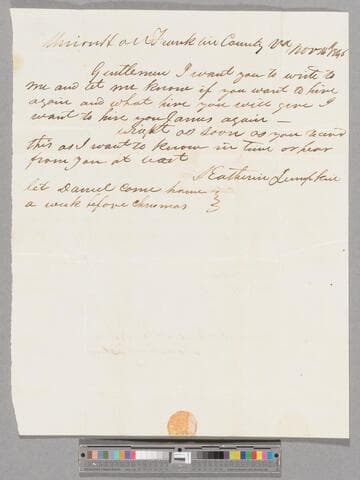 Union Hall Franklin County Va Nov 16th 1846
Gentlemen I want you to write to
me and let me know if you want to hire
again and what hire you will give I
want to hire you James again —
as soon as you
this as I want to know in time or hear
from you at
Katherin
let Daniel come home
a week before chrismas